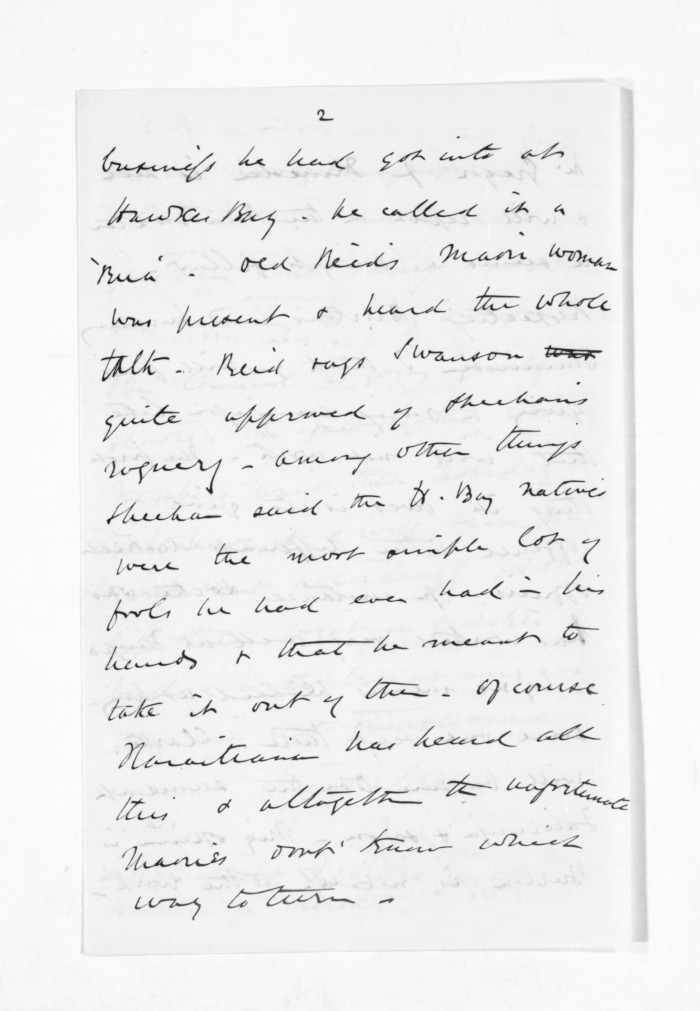 2
business he had got into at
Hawkes Bay - he called it a
- old Reid's Maori woman
was present & heard the whole
talk - Reid says Swanson was
quite approved of Sheehan's
roguery - among other things
Sheehan said the H. Bay natives
were the most simple lot of
fools he had ever had in his
hands & that he meant to
take it out of them - of course
Karaitiana has heard all
this & altogether the unfortunate
Maories dont know which
way to turn -